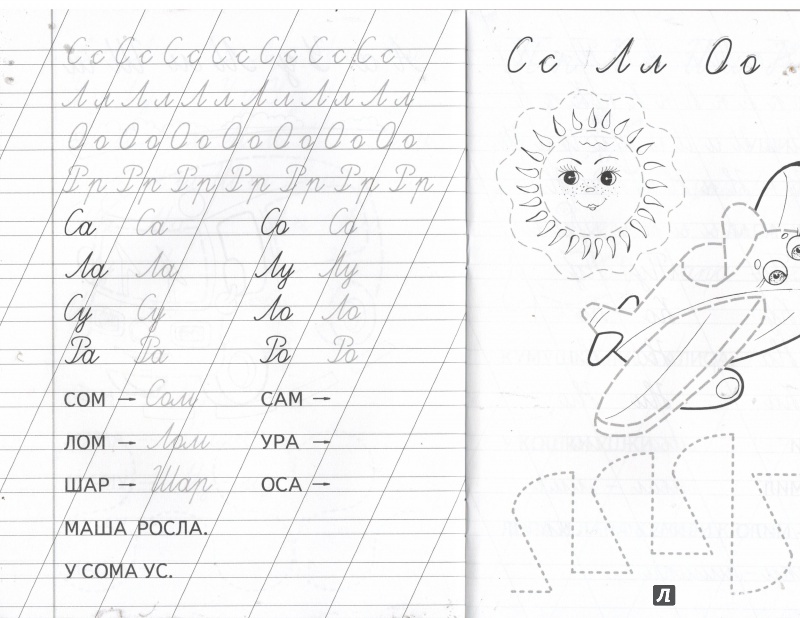 Сс Сс Сс Сс Сс Сс Сс
Лл Лл Лл Лл Лл Лл
Оо Оо Оо Оо Оо Оо Оо
Рр Рр Рр Рр Рр Рр Рр
Са Са Со Со
Ла Ла Лу Лу
Су Су Ло Ло
Ра Ра Ро Ро
СОМ → Сом САМ →
ЛОМ → Лом УРА →
ШАР → Шар ОСА →
МАША РОСЛА.
У СОМА УС.
Сс Лл Оо
Л